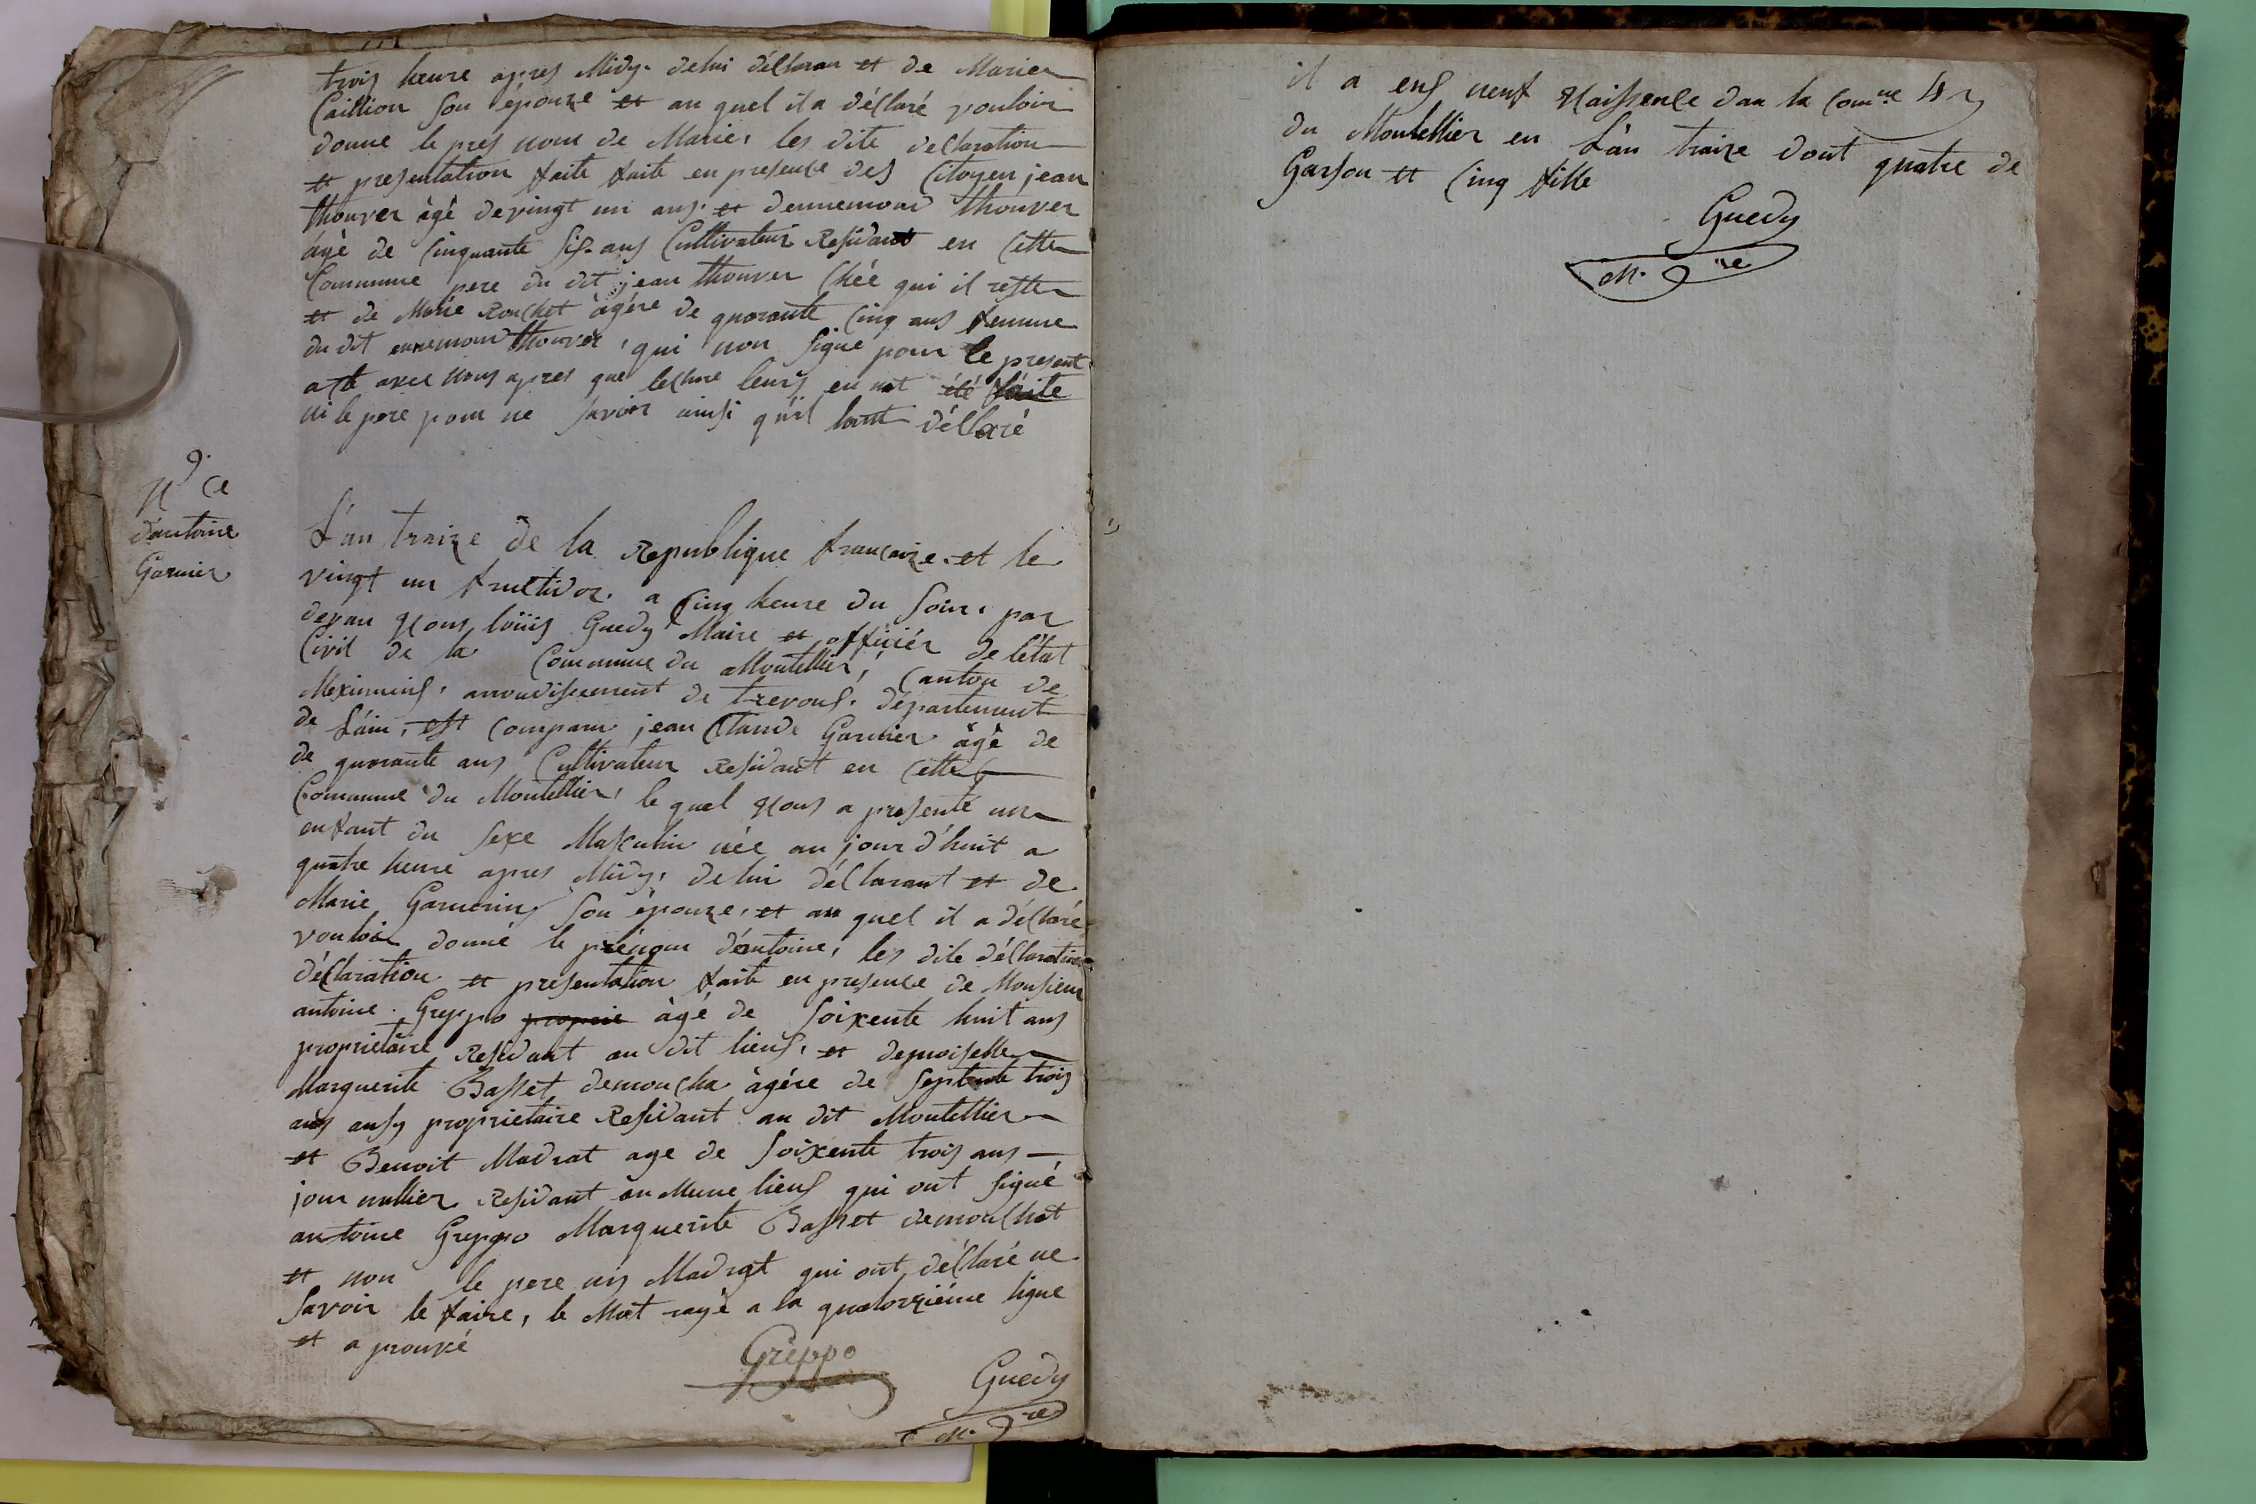 trois heure apres Midy. delui déClaran et de Marie
Caillion son épouze et au quel il a déClaré vouloir
donne le pres nom de Marie, les dite deClaration
et presentation faite faite en presence des Citoyen jean
thouver àgé de vingt un ans. et dennemond thouver
àgé de Cinquante six ans Cultivateur Residant en Cette
Commune pere du dit jean thouver Chée qui il reste
et de Marie Rouchet àgére de quarante Cinq ans femme
du dit ennemond thouver, qui non signe pour le present
acte avec nous apres que leCture leurs en nat été faite
ni le pere pour ne savoir ainsi qu'il lont déClaré
Nce
d'antoine
Garnier
L'an traize de la Republique francaize. et le
vingt un fructidor. a Cinq heure du soir. par
devan Nous loüis Guedy Maire et officiér de l'état
Civil de la Commune du Montellier, Canton de
Meximiens, arrondissement de trevous. département
de L'ain, est Comparu jean Claude Garnier àgé de
de quarante ans Cultivateur Residant en Cette
Commune du Montellier, le quel Nous a presenté un
enfant du sexe Masculin née au jour d'huit a
quatre heure apres Midy, de lui déClarant et de
Marie Garnerin son épouze, et au quel il a déClaré
vouloir donné le prénom d'antoine, les dite déClaration
déClaration et presentation faite en presence de Monsieur
antoine Greppo proprie àgé de soixente huit ans
proprietaire Residant au dit lieus, et demoiselle
Marguerite Basset demoucha àgére de septente trois
ans ausy proprietaire Residant au dit Montellier
et Benoit Madrat age de soixente trois ans
jour nallier Residant au Meme lieus qui ont signé
antoine Greppo Marguerite Basset demouchat
et non le pere ny Madrat qui ont déClaré ne
savoir le faire, le Mot rayé a la quatorziéme ligne
et a prouvé
Greppo
Guedy
M. re
il a ens neuf Naissence dan la Comne
du Montellier en L'an traize dont quatre de
Garson et Cinq fille
Guedy
M. re